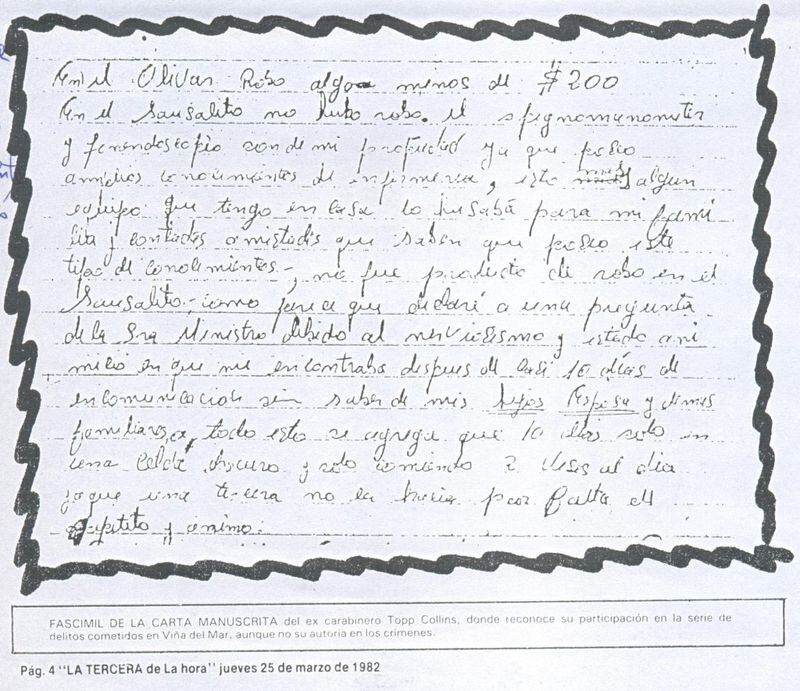 En el Olivar Robo algo menos de $200
En el Sausalito no hubo robo. el esfignomanometer
y fonendoscopio son de mi propiedad ya que poseo
amplios conocimientos de enfermeria, este algun
equipo que tengo en casa lo husaba para mi fami
lia y contadas amistades que saben que poseo este
tipo de conocimientos-, no fue producto de robo en el
Sausalito- como parece que declaré a una pregunta
de la Sra Ministro debido al nerviosismo y estado ani
mico en que me encontraba despues de casi 10 días de
encomunicacion sin saber de mis hijos Esposa y demas
familiares, a todo esto se agrega que 10 dias solo en
una celda obscura y solo comiendo 2 veses al dia
ya que una tercera no la hacia por falta de
apetito y animo.
FASCIMIL DE LA CARTA MANUSCRITA del ex carabinero Topp Collins, donde reconoce su participación en la serie de
delitos cometidos en Viña del Mar, aunque no su autoría en los crímenes.
Pág. 4 "LA TERCERA de La hora" jueves 25 de marzo de 1982